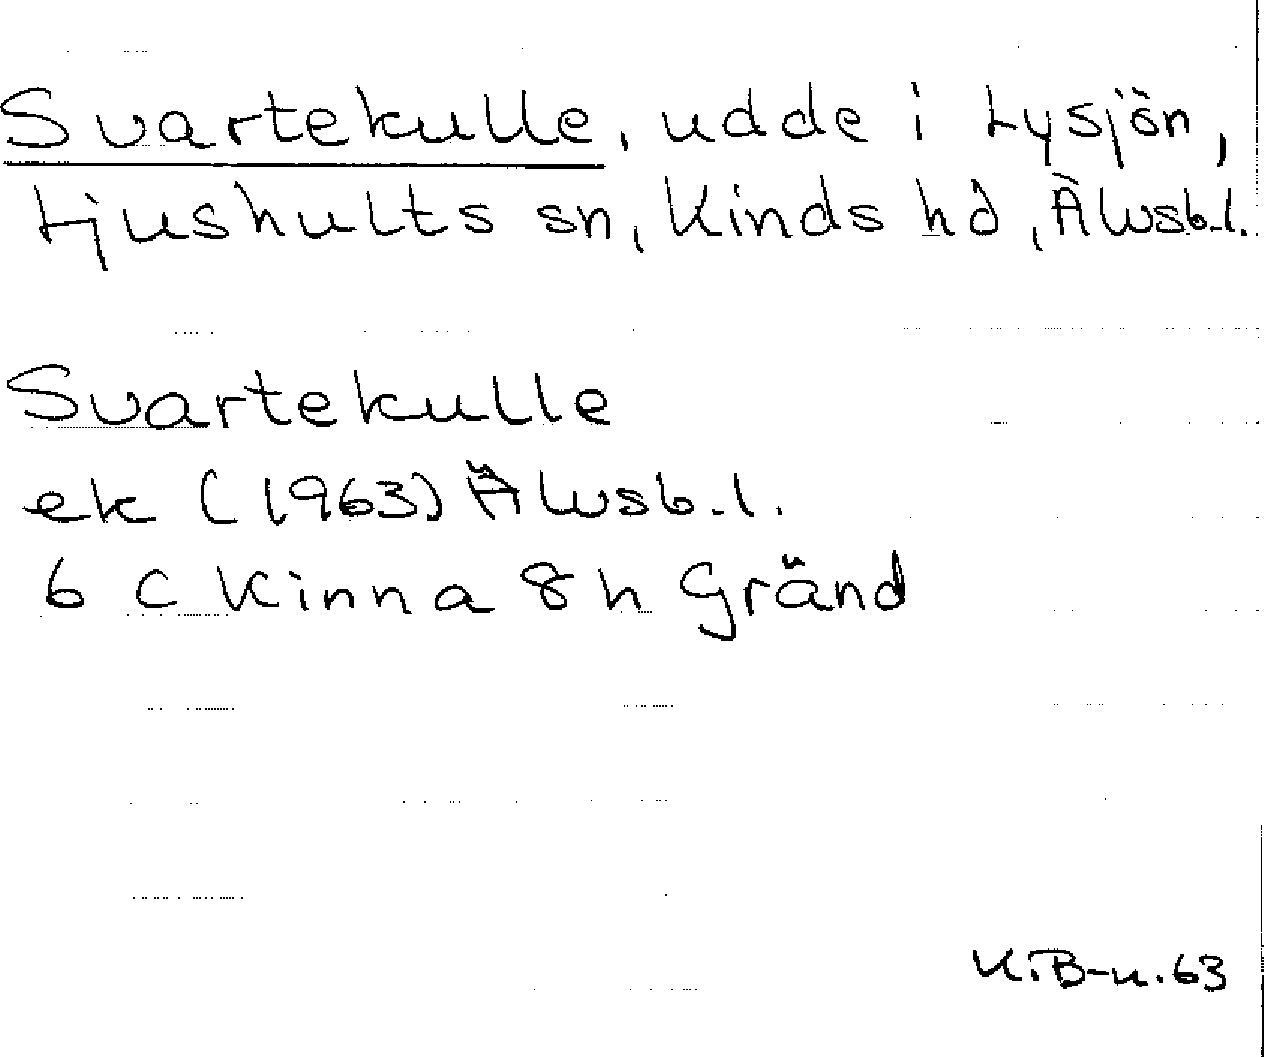 Svartekulle, udde i Lysjön,
Ljushults sn, Kinds hd, Älvsb.l.
Svartekulle
ek (1963) Älvsb.l.
6 C Kinna 8h Gränd
K.B-n.63